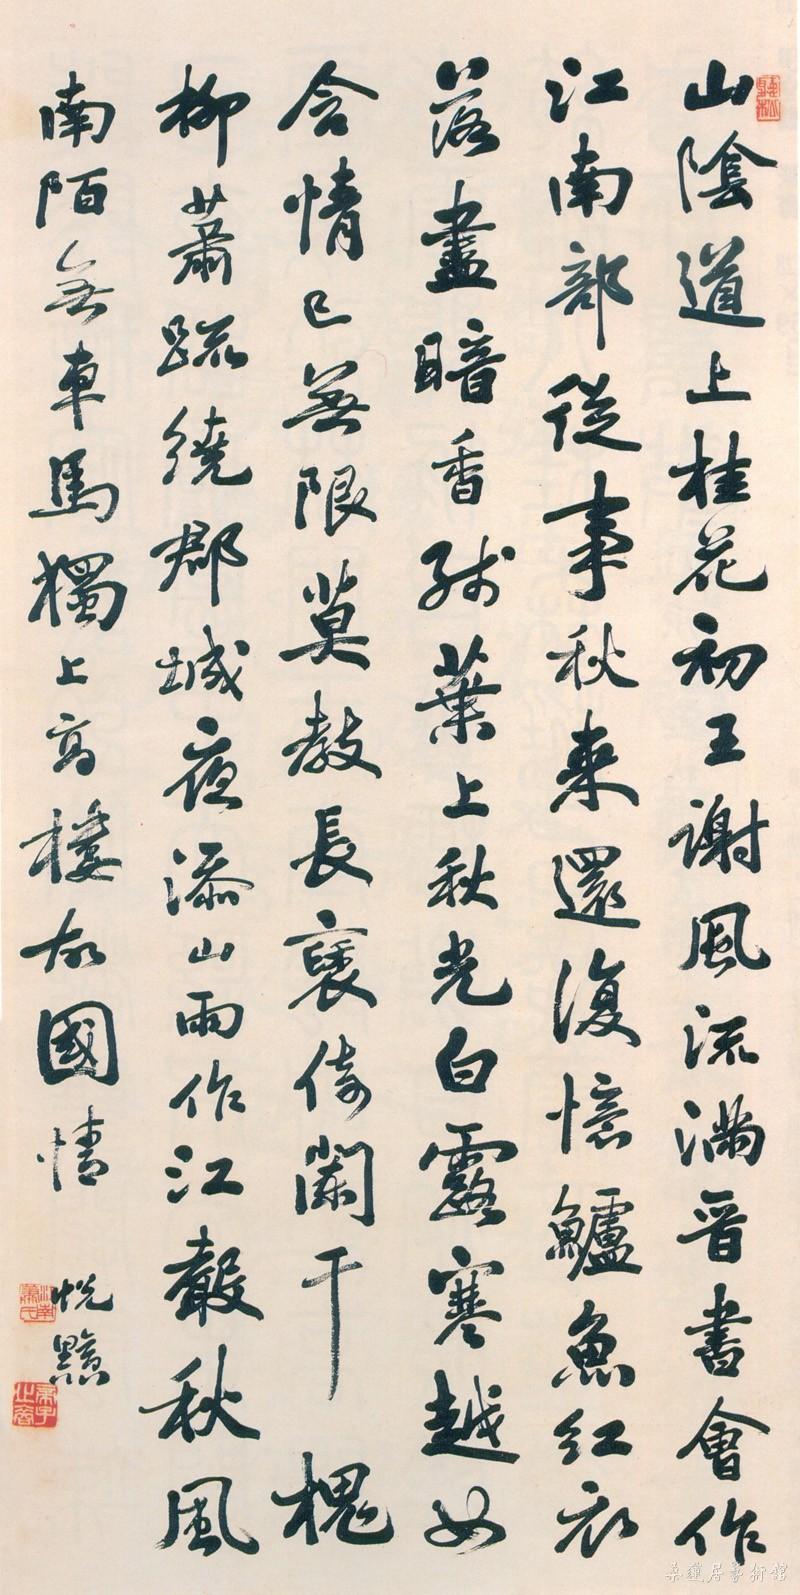 山陰道上桂花初王謝風流滿晉書會作
江南部從事秋来還復憶鱸魚紅衣
落盡暗香殘葉上秋光白露寒越女
含情已無限莫教長褏倚闌干 槐
柳蕭疏繞郡城夜添山雨作江聲秋風
南陌無車馬獨上高樓故國情
悦黟
江南蕭氏
桑蓮居藝術館